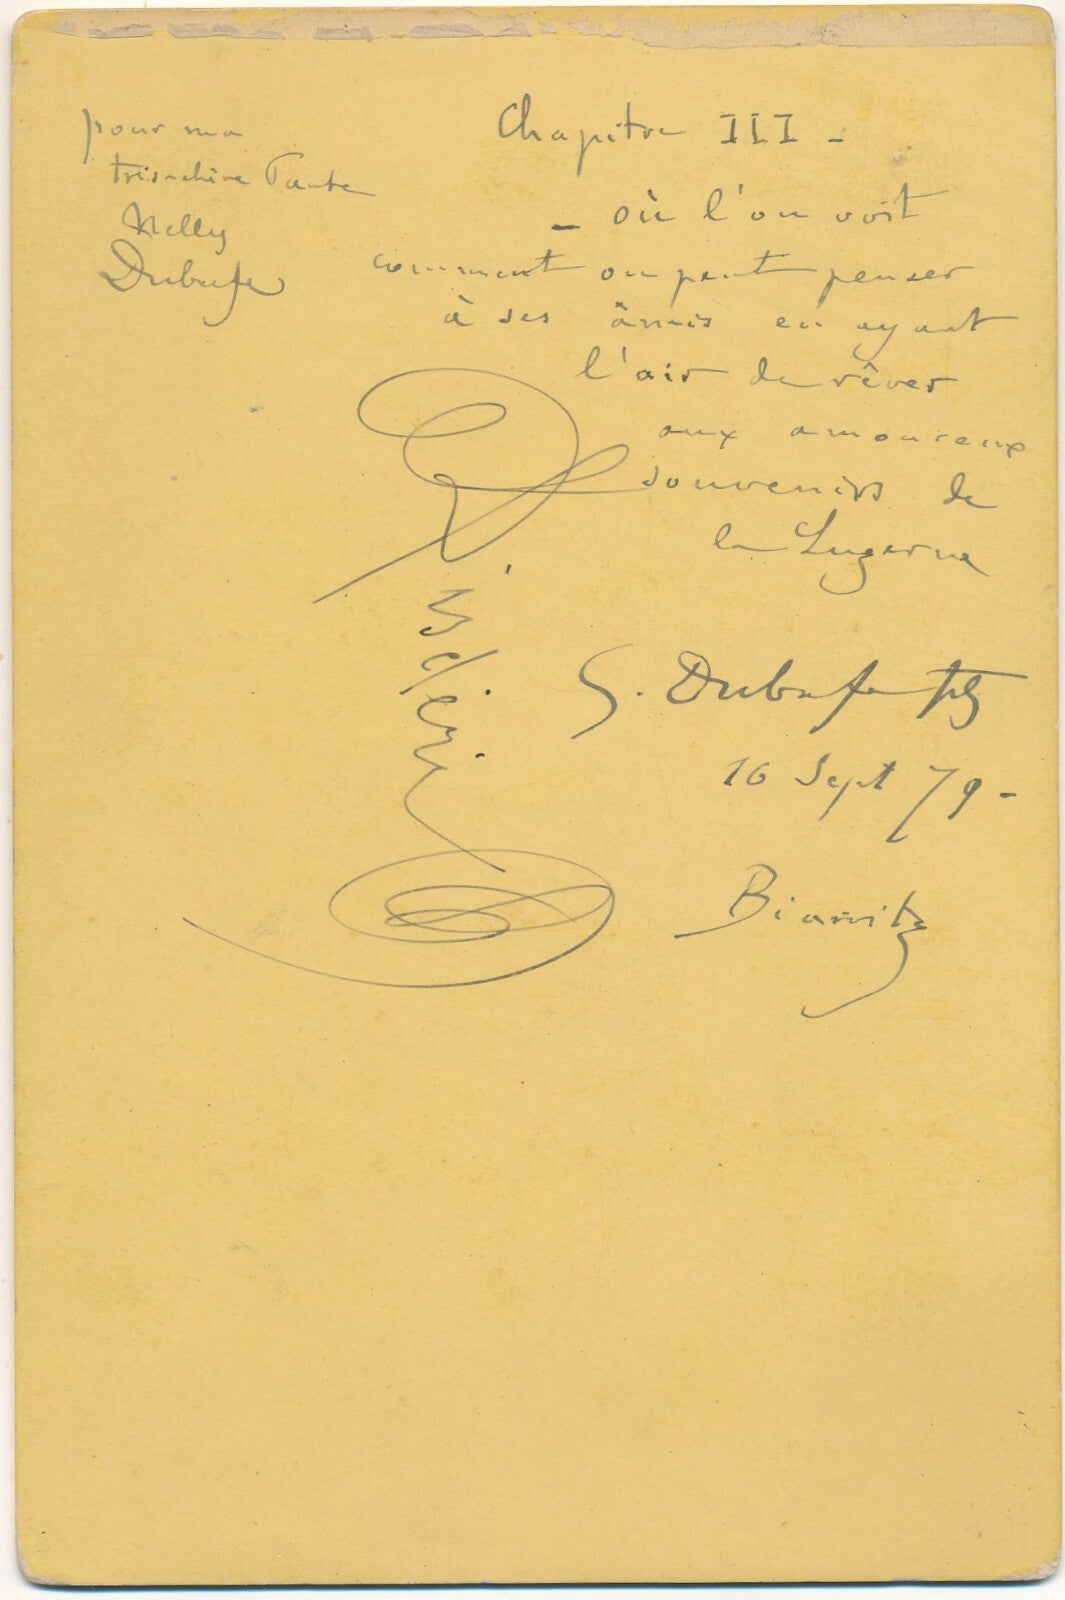 pour ma
très chère Tante
Nelly
Dubufe
Chapitre III -
- où l'on voit
comment on peut penser
à ses âmis en ayant
l'air de rêver
aux amoureux
souvenirs de
la Luzerne
Disdéri
G. Dubufe fils
16 Sept 79 -
Biarritz